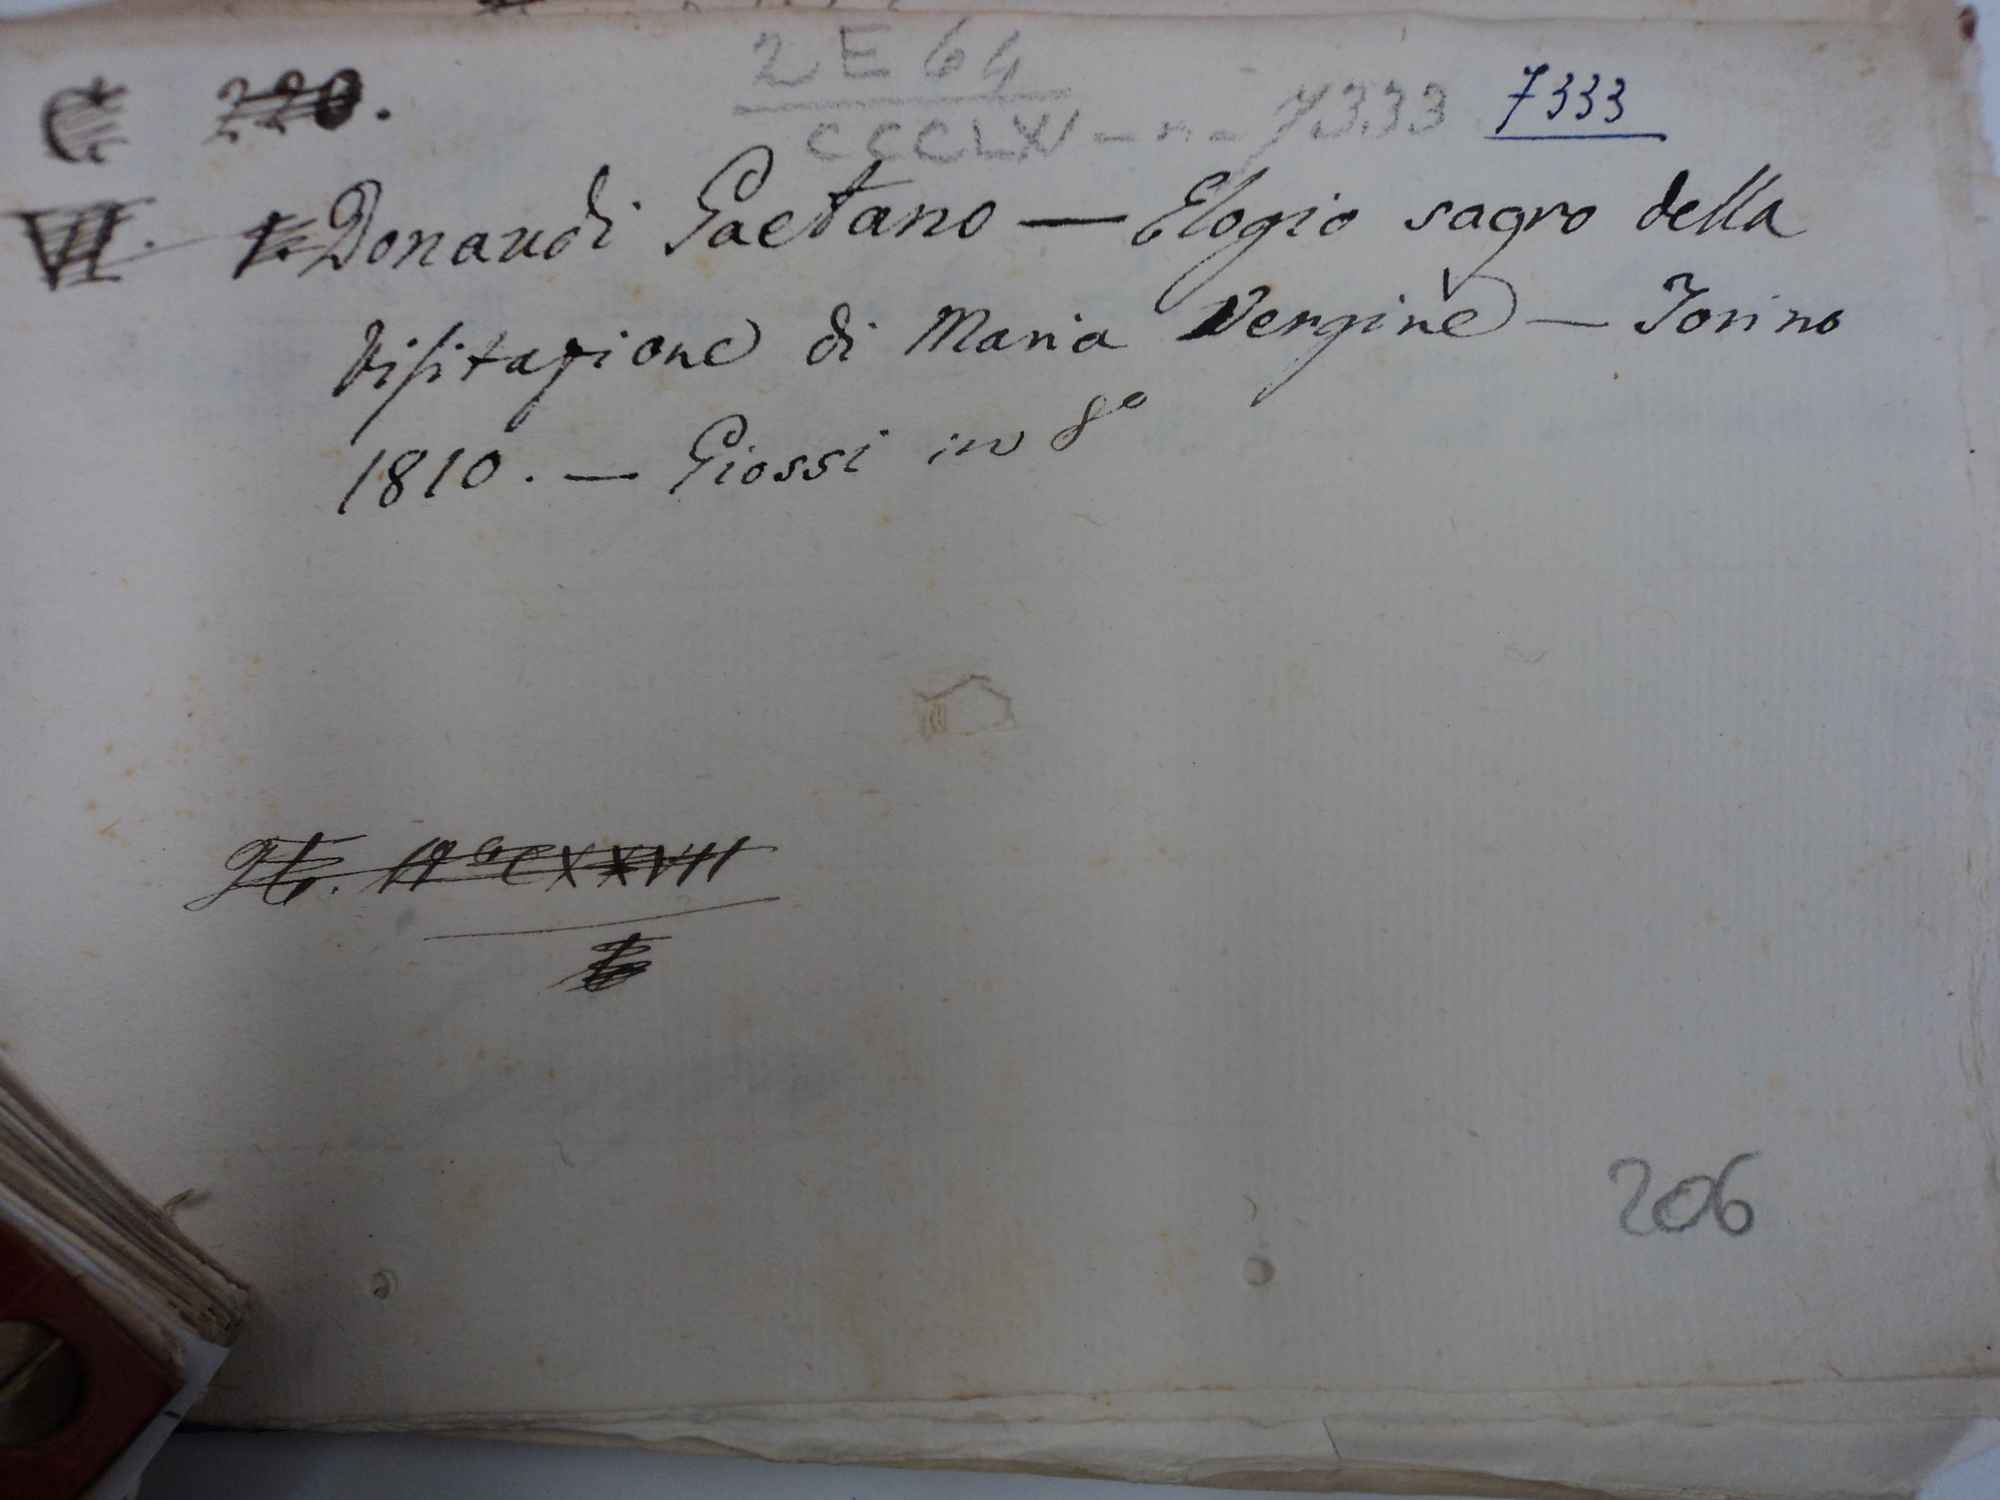 2 E 64
C 220. CCCLXI - n - 7333 7333
VII. Donaudi Gaetano — Elogio sagro della
Visitazione di Maria Vergine — Torino
1810. — Giossi in 8º
CXXVII
206